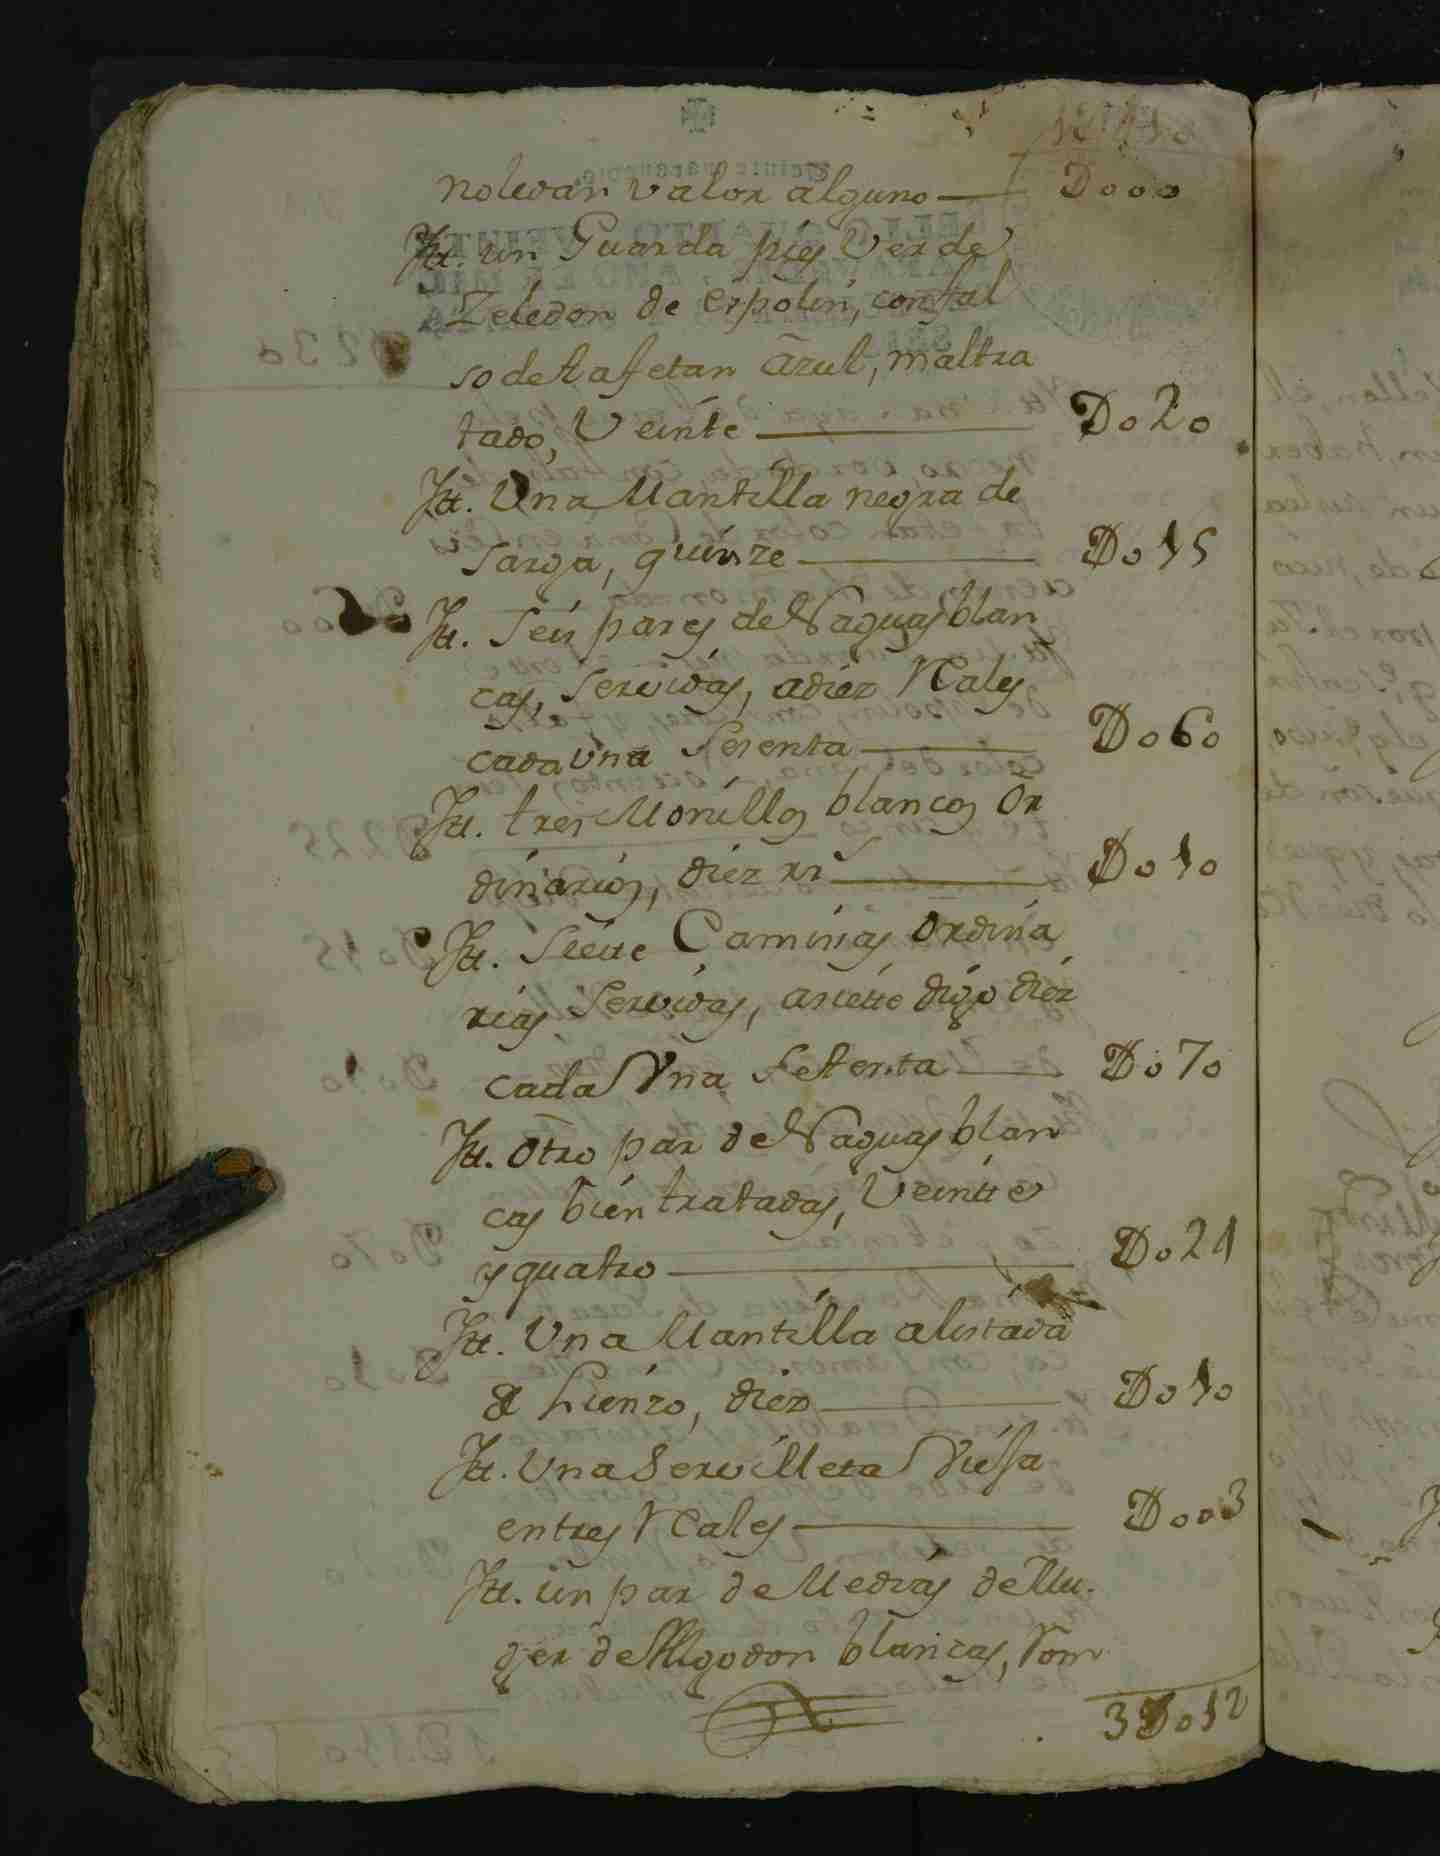 noledan valor alguno — D000
Itt. un Guarda pies Verde
Zeledon de espolin, confal
so detafetan azul, maltra
tado, Veinte — D020
Itt. Una Mantilla negra de
sarga, quinze — D015
Itt. Seis pares de Naguas blan
cas, servidas, adiez Rales
cada una Sesenta — D060
Itt. tres Monillos blancos Or
dinarios, diez rs — D010
Itt. Siette Camisas Ordina
rias Servidas, asiette digo diez
cada Vna Settenta — D070
Itt. Otro par de Naguas blan
cas bien tratadas, Veintte
yquatro — D024
Itt. Una Mantilla alistada
de Lienzo, diez — D010
Itt. Una Servilleta Viessa
entres Rales — D003
Itt. un par de Medias de Mu.
ger de Algodon blancas, Som
3D012